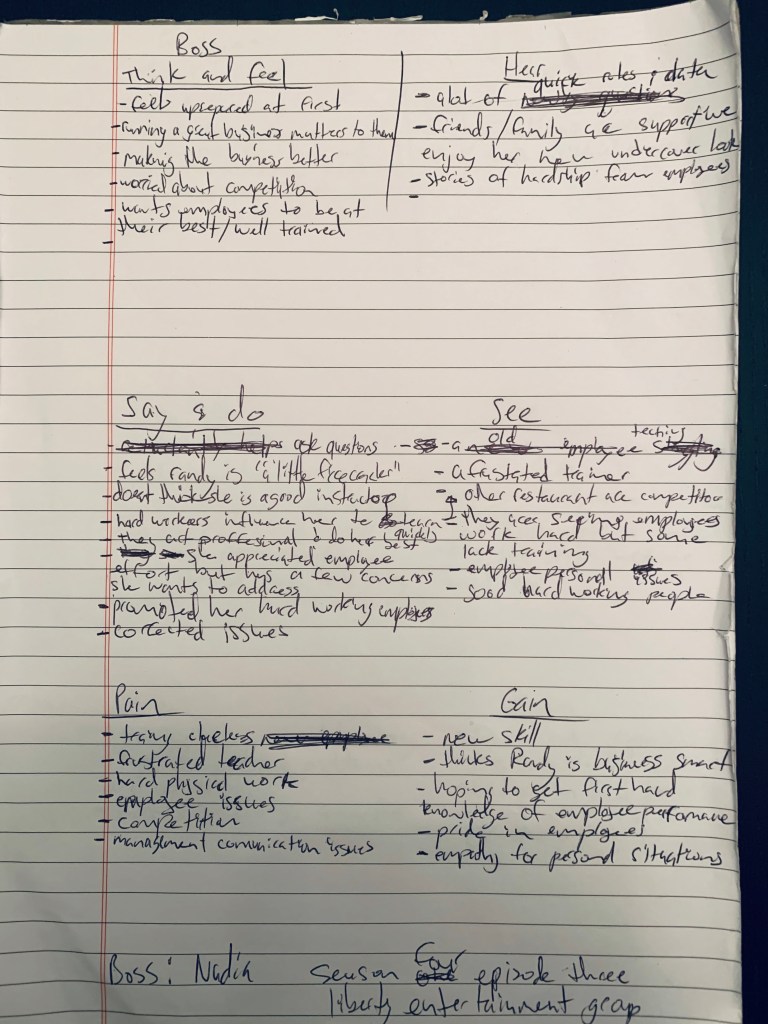 Boss
Think and feel
- feels unprepared at first
- running a great business matters to them
- making the business better
- worried about competition
- wants employees to be at
their best/well trained
-
Hear
- alot of quick rates & data
- friends/family are supportive
enjoy her new undercover look
- stories of hardship from employees
-
Say & do
ask questions
- feels randy is "a little firecracker"
- doesnt think she is a good instructor
- hard workers influence her to learn quickly
- they act proffesional & do her best
- she appreciated employee
effort but has a few concerns
she wants to address
- promoted her hard working employees
- corrected issues
See
- a old employee teaching
- a frustated trainer
- other restaurant are competition
- they are seeing employees
work hard but some
lack training
- employee personal issues
- good hard working people
Pain
- clueless
- frustrated teacher
- hard physical work
- employee issues
- competition
- management comunication issues
Gain
- new skill
- thinks Randy is business smart
- hoping to get first hand
knowledge of employee performance
- pride in employees
- empathy for personal situations
Boss: Nadia
Season four episode three
liberty entertainment group